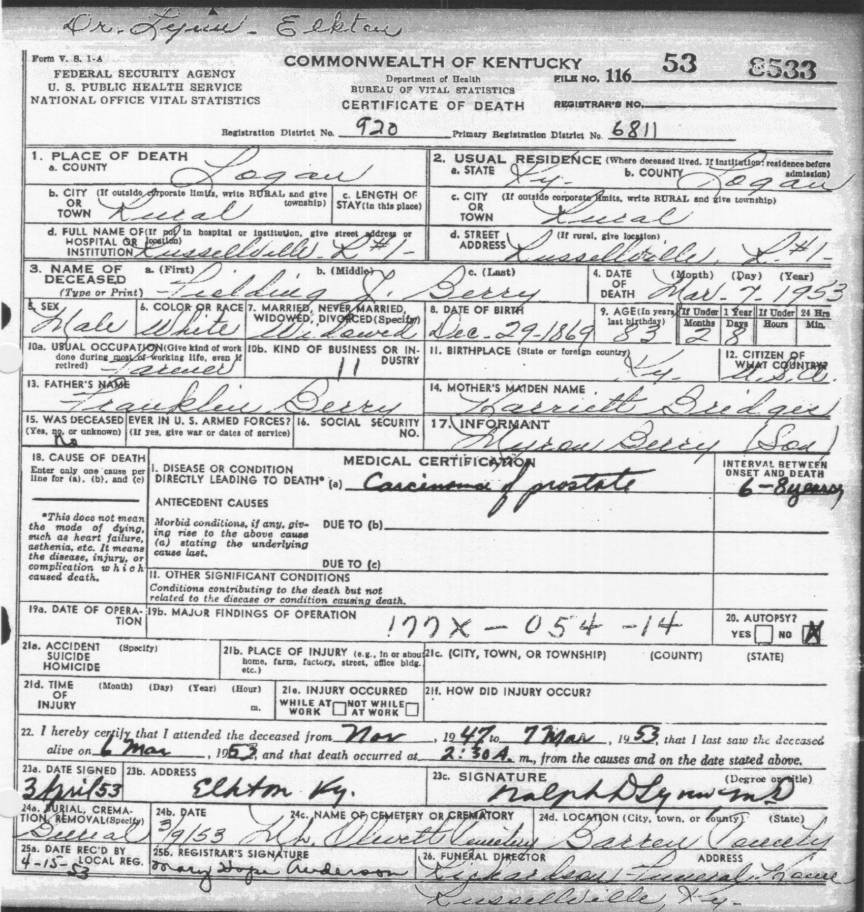 Dr. Lynn - Elkton
Form V. S. 1-A
FEDERAL SECURITY AGENCY
U. S. PUBLIC HEALTH SERVICE
NATIONAL OFFICE VITAL STATISTICS
COMMONWEALTH OF KENTUCKY
Department of Health
BUREAU OF VITAL STATISTICS
CERTIFICATE OF DEATH
FILE NO. 116 53 8533
REGISTRAR'S NO.
Registration District No. 920 Primary Registration District No. 6811
1. PLACE OF DEATH
a. COUNTY Logan
2. USUAL RESIDENCE (Where deceased lived. If institution: residence before admission)
a. STATE Ky. b. COUNTY Logan
b. CITY (If outside corporate limits, write RURAL and give township) OR TOWN Rural
c. LENGTH OF STAY (in this place)
c. CITY (If outside corporate limits, write RURAL and give township) OR TOWN Rural
d. FULL NAME OF (If not in hospital or institution, give street address or location) HOSPITAL OR INSTITUTION Russellville R#1-
d. STREET ADDRESS (If rural, give location) Russellville, R.#1-
3. NAME OF DECEASED (Type or Print)
a. (First) b. (Middle) c. (Last)
Fielding J. Berry
4. DATE OF DEATH (Month) (Day) (Year)
Mar. 7 - 1953
5. SEX Male
6. COLOR OR RACE White
7. MARRIED, NEVER MARRIED, WIDOWED, DIVORCED (Specify) Widowed
8. DATE OF BIRTH Dec. 29-1869
9. AGE (In years last birthday) 83
If Under 1 Year Months 2 Days 8
If Under 24 Hrs Hours Min.
10a. USUAL OCCUPATION (Give kind of work done during most of working life, even if retired) Farmer
10b. KIND OF BUSINESS OR INDUSTRY 11
11. BIRTHPLACE (State or foreign country) Ky.
12. CITIZEN OF WHAT COUNTRY? U.S.A.
13. FATHER'S NAME
Franklin Berry
14. MOTHER'S MAIDEN NAME
Harriett Bridges
15. WAS DECEASED EVER IN U. S. ARMED FORCES?
(Yes, no, or unknown) (If yes, give war or dates of service)
No
16. SOCIAL SECURITY NO.
17. INFORMANT
Myron Berry (Son)
18. CAUSE OF DEATH
Enter only one cause per line for (a), (b), and (c)
*This does not mean the mode of dying, such as heart failure, asthenia, etc. It means the disease, injury, or complication which caused death.
MEDICAL CERTIFICATION
I. DISEASE OR CONDITION DIRECTLY LEADING TO DEATH* (a) Carcinoma of prostate
INTERVAL BETWEEN ONSET AND DEATH
6-8 years
ANTECEDENT CAUSES
Morbid conditions, if any, giving rise to the above cause (a) stating the underlying cause last.
DUE TO (b)
DUE TO (c)
II. OTHER SIGNIFICANT CONDITIONS
Conditions contributing to the death but not related to the disease or condition causing death.
19a. DATE OF OPERATION
19b. MAJOR FINDINGS OF OPERATION
177X - 054 -14
20. AUTOPSY?
YES NO X
21a. ACCIDENT SUICIDE HOMICIDE (Specify)
21b. PLACE OF INJURY (e.g., in or about home, farm, factory, street, office bldg. etc.)
21c. (CITY, TOWN, OR TOWNSHIP) (COUNTY) (STATE)
21d. TIME OF INJURY (Month) (Day) (Year) (Hour) m.
21e. INJURY OCCURRED
WHILE AT WORK NOT WHILE AT WORK
21f. HOW DID INJURY OCCUR?
22. I hereby certify that I attended the deceased from Nov, 1947 to 7 Mar, 1953, that I last saw the deceased
alive on 6 Mar, 1953, and that death occurred at 2:30 A. m., from the causes and on the date stated above.
23a. DATE SIGNED
3 April 53
23b. ADDRESS
Elkton Ky.
23c. SIGNATURE (Degree or title)
Ralph D Lynn M.D.
24a. BURIAL, CREMATION, REMOVAL (Specify)
Burial
24b. DATE
3/9/53
24c. NAME OF CEMETERY OR CREMATORY
Mt. Olivett Cemetery
24d. LOCATION (City, town, or county) (State)
Barren County
25a. DATE REC'D BY LOCAL REG.
4-15-53
25b. REGISTRAR'S SIGNATURE
Mary Hope Anderson
26. FUNERAL DIRECTOR ADDRESS
Richardson Funeral Home
Russellville, Ky.